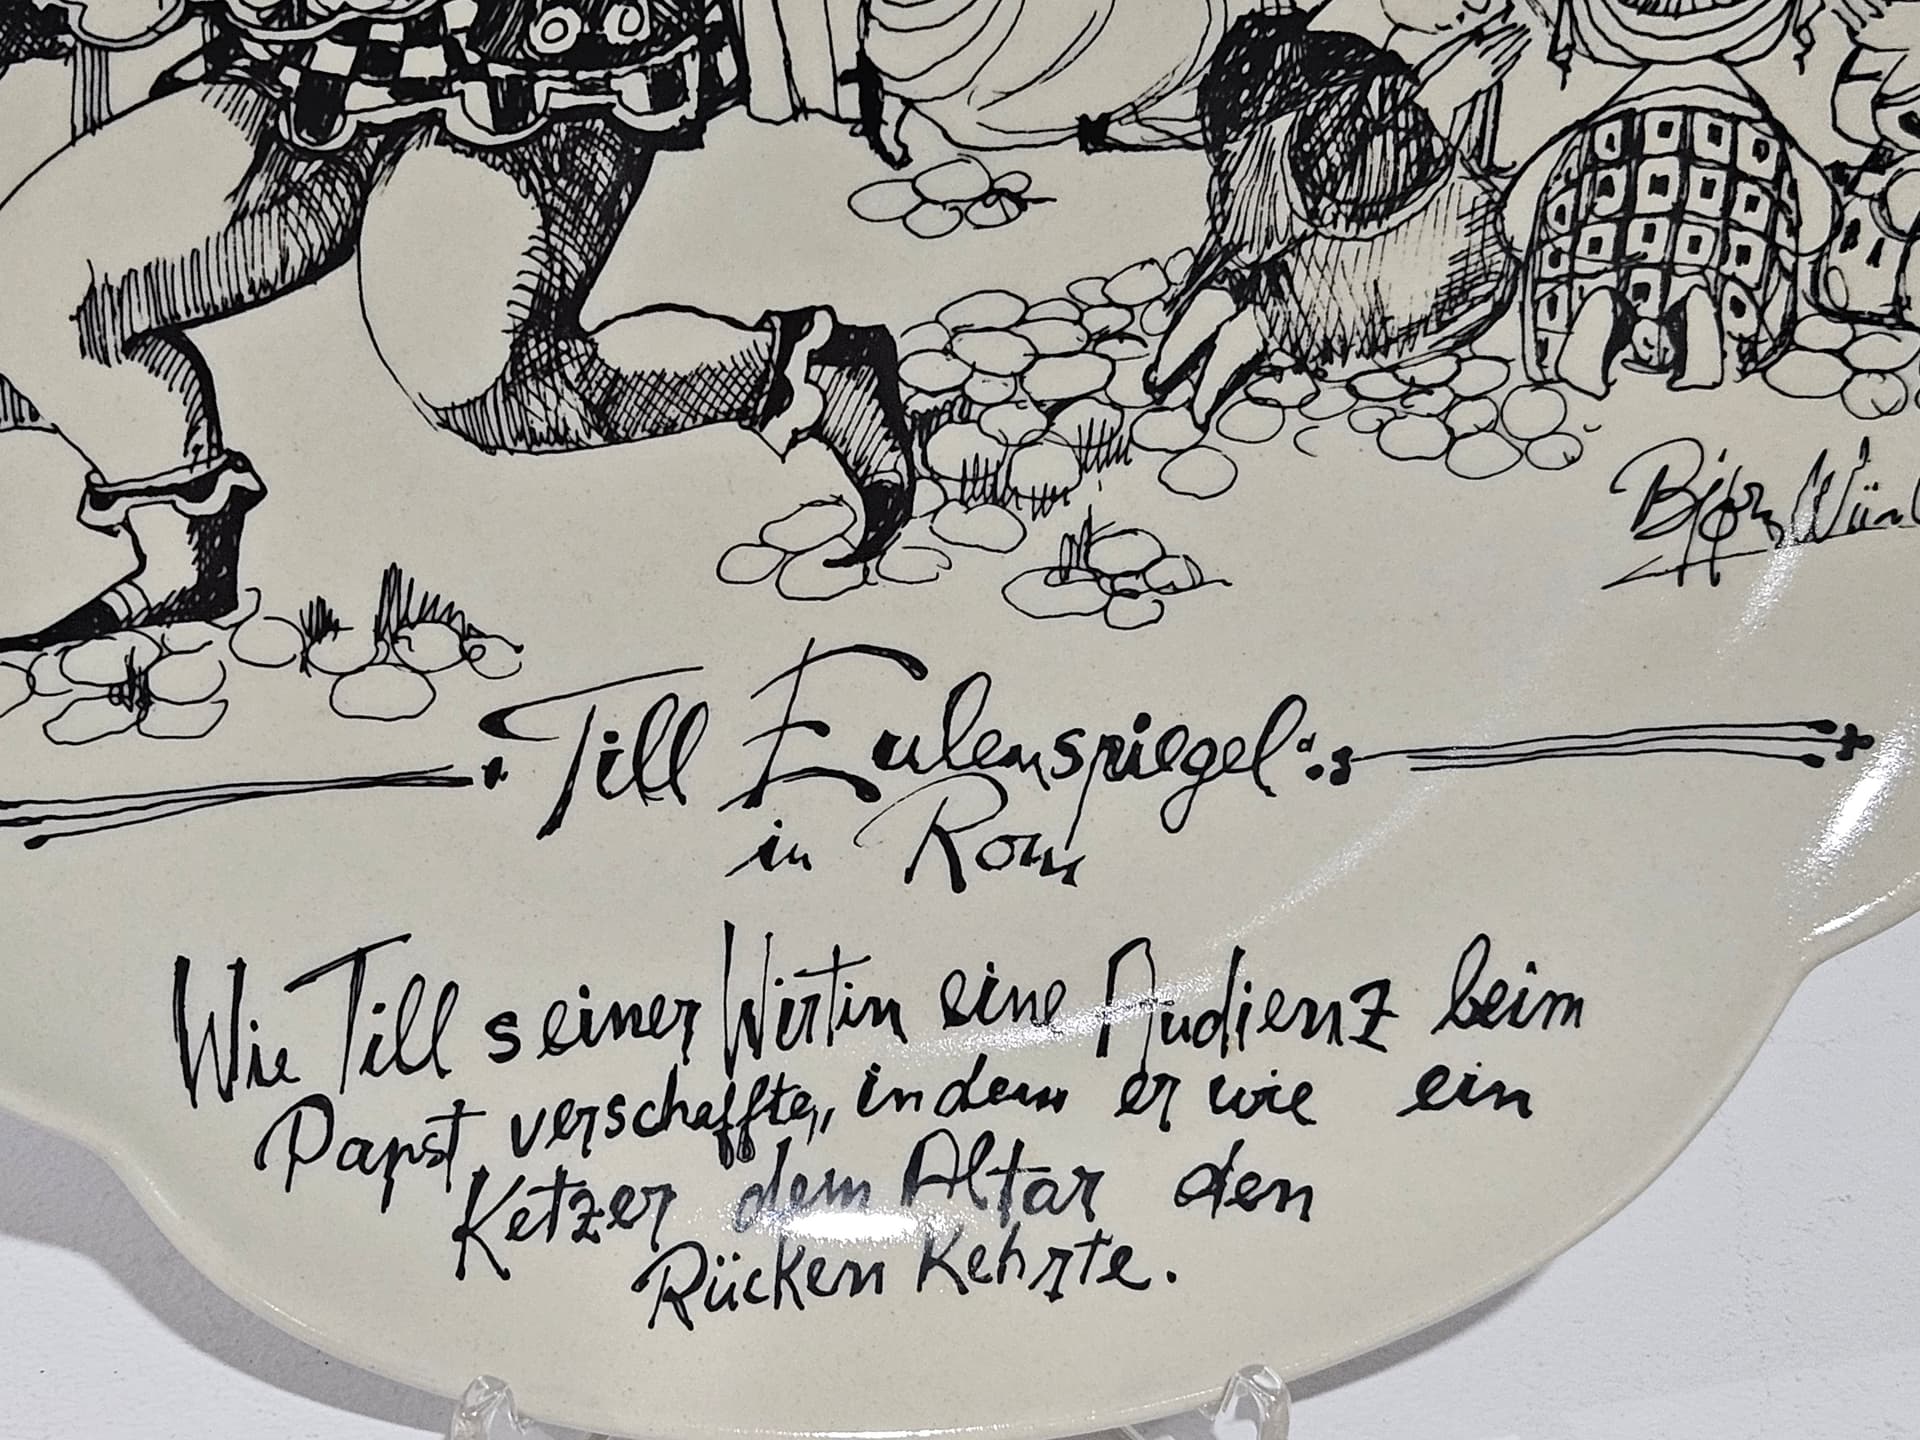 Björn
Till Eulenspiegel
in Rom
Wie Till seiner Wirtin eine Audienz beim
Papst verschaffte, indem er wie ein
Ketzer dem Altar den
Rücken kehrte.